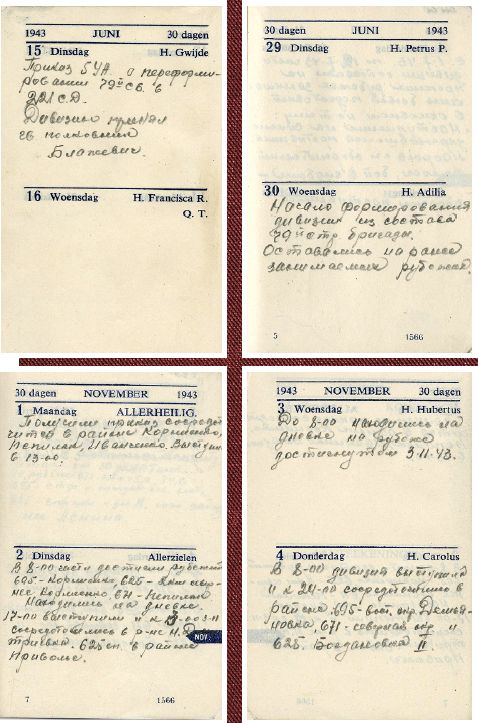 1943 JUNI 30 dagen
15 Dinsdag H. Gwijde
Приказ 5УА о переформи-
ровании 79й св. б
221 С.Д.
Дивизию принял
гв полковник
Блажевич.
16 Woensdag H. Francisca R.
Q. T.
30 dagen JUNI 1943
29 Dinsdag H. Petrus P.
30 Woensdag H. Adilia
Начало формирования
дивизии из состава
79й стр бригады.
Оставались на ранее
занимаемых рубежах.
5 1566
30 dagen NOVEMBER 1943
1 Maandag ALLERHEILIG.
Получили приказ сосредо
читься в районе Корниенко,
Непилак, Иванченко. Выступ
в 13-00.
2 Dinsdag Allerzielen
В 8-00 части достигли рубежей
695 - Корниенко, 625 -
нее Корниенко 671 - Непилак
Находились на дневке.
17-00 выступили и к 3-00 3-11
сосредоточились в р-не
625 сп. в районе
Приволье.
NOV.
7 1566
1943 NOVEMBER 30 dagen
3 Woensdag H. Hubertus
До 8-00 находились на
дневке на рубеже
достигнутом 3.11.43.
4 Donderdag H. Carolus
В 8-00 дивизия выступила
и к 24-00 сосредоточились в
районе, 695 - вост. окр
671 - северная окр и
625. Богдановка II.
7 1566